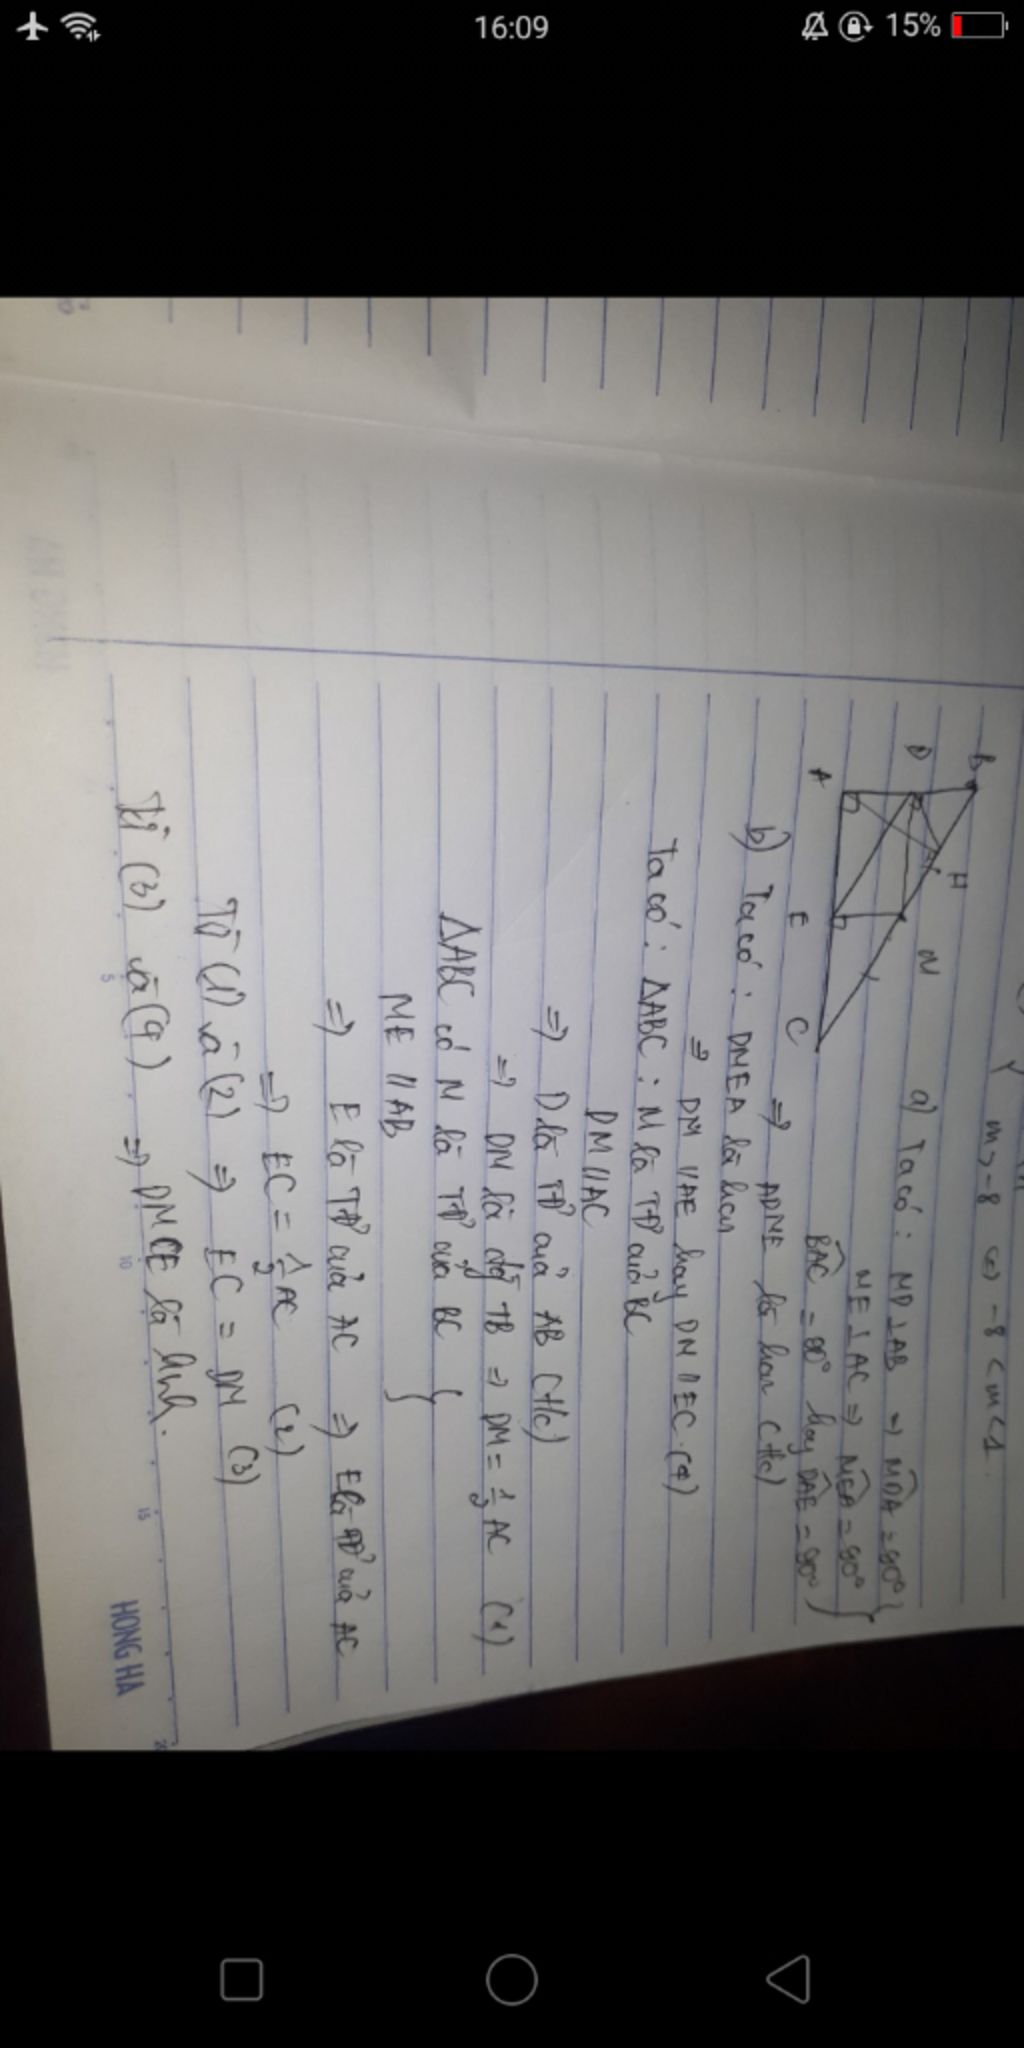 16:09
15%
m > -8 <=> -8 < m < 1.
B
D
H
N
A
E
C
a) Ta có: MD ⊥ AB => MDA = 90°
ME ⊥ AC => MEA = 90°
BAC = 90° hay DAE = 90°
=> ADME là hcn (t/c)
b) Ta có: DMEA là hcn
=> DM // AE hay DM // EC. (4)
Ta có: ΔABC: M là TĐ của BC
DM // AC
=> D là TĐ của AB (t/c)
=> DM là đg TB => DM = 1/2 AC (1)
ΔABC có M là TĐ của BC
ME // AB
=> E là TĐ của AC => E là TĐ của AC
=> EC = 1/2 AC (2)
Từ (1) và (2) => EC = DM (3)
Từ (3) và (4) => DMCE là hbh.
5
10
15
20
HONG HA